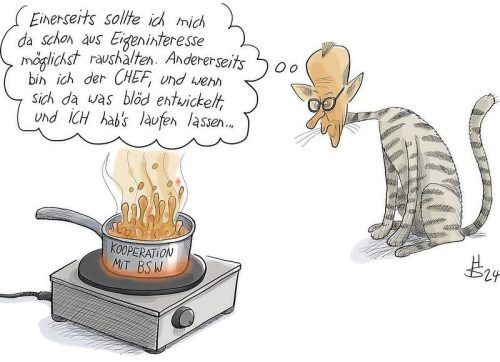 Einerseits sollte ich mich
da schon aus Eigeninteresse
möglichst raushalten. Andererseits
bin ich der CHEF, und wenn
sich da was blöd entwickelt,
und ICH hab's laufen lassen...
KOOPERATION
MIT BSW
HB
24